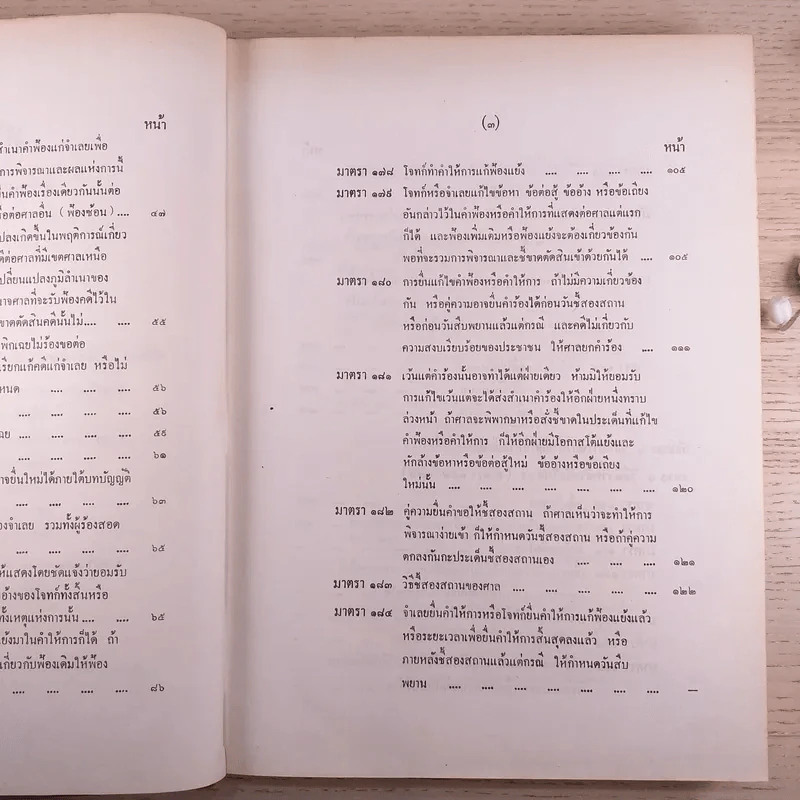 หน้า
สำเนาคำฟ้องแก่จำเลยเพื่อ
การพิจารณาและผลแห่งการนี้
ื่นคำฟ้องเรื่องเดียวกันนั้นต่อ
ือต่อศาลอื่น (ฟ้องซ้อน).... ๔๗
ปลงเกิดขึ้นในพฤติการณ์เกี่ยว
ดีต่อศาลที่มีเขตศาลเหนือ
เปลี่ยนแปลงภูมิลำเนาของ
นาจศาลที่จะรับฟ้องคดีไว้ใน
ขาดตัดสินคดีนั้นไม่.... .... ๕๕
พิกเฉยไม่ร้องขอต่อ
เรียกแก้คดีแก่จำเลย หรือไม่
หนด .... .... .... ๕๖
.... .... .... .... ๕๖
ฉย .... .... .... .... ๕๙
.... .... .... .... ๖๑
าจยื่นใหม่ได้ภายใต้บทบัญญัติ
.... .... .... .... ๖๓
องจำเลย รวมทั้งผู้ร้องสอด
.... .... .... .... ๖๕
ห้แสดงโดยชัดแจ้งว่ายอมรับ
อ้างของโจทก์ทั้งสิ้นหรือ
ทั้งเหตุแห่งการนั้น.... .... ๖๕
แย้งมาในคำให้การก็ได้ ถ้า
เกี่ยวกับฟ้องเดิมให้ฟ้อง
.... .... .... .... ๘๖
(๓)
หน้า
มาตรา ๑๗๘ โจทก์ทำคำให้การแก้ฟ้องแย้ง .... .... .... .... ๑๐๕
มาตรา ๑๗๙ โจทก์หรือจำเลยแก้ไขข้อหา ข้อต่อสู้ ข้ออ้าง หรือข้อเถียง
อันกล่าวไว้ในคำฟ้องหรือคำให้การที่แสดงต่อศาลแต่แรก
ก็ได้ และฟ้องเพิ่มเติมหรือฟ้องแย้งจะต้องเกี่ยวข้องกัน
พอที่จะรวมการพิจารณาและชี้ขาดตัดสินเข้าด้วยกันได้ .... ๑๐๕
มาตรา ๑๘๐ การยื่นแก้ไขคำฟ้องหรือคำให้การ ถ้าไม่มีความเกี่ยวข้อง
กัน หรือคู่ความอาจยื่นคำร้องได้ก่อนวันชี้สองสถาน
หรือก่อนวันสืบพยานแล้วแต่กรณี และคดีไม่เกี่ยวกับ
ความสงบเรียบร้อยของประชาชน ให้ศาลยกคำร้อง .... ๑๑๑
มาตรา ๑๘๑ เว้นแต่คำร้องนั้นอาจทำได้แต่ฝ่ายเดียว ห้ามมิให้ยอมรับ
การแก้ไขเว้นแต่จะได้ส่งสำเนาคำร้องให้อีกฝ่ายหนึ่งทราบ
ล่วงหน้า ถ้าศาลจะพิพากษาหรือสั่งชี้ขาดในประเด็นที่แก้ไข
คำฟ้องหรือคำให้การ ก็ให้อีกฝ่ายมีโอกาสโต้แย้งและ
หักล้างข้อหาหรือข้อต่อสู้ใหม่ ข้ออ้างหรือข้อเถียง
ใหม่นั้น .... .... .... .... .... .... .... ๑๒๐
มาตรา ๑๘๒ คู่ความยื่นคำขอให้ชี้สองสถาน ถ้าศาลเห็นว่าจะทำให้การ
พิจารณาง่ายเข้า ก็ให้กำหนดวันชี้สองสถาน หรือถ้าคู่ความ
ตกลงกันกะประเด็นชี้สองสถานเอง .... .... .... ๑๒๑
มาตรา ๑๘๓ วิธีชี้สองสถานของศาล .... .... .... .... .... ๑๒๒
มาตรา ๑๘๔ จำเลยยื่นคำให้การหรือโจทก์ยื่นคำให้การแก้ฟ้องแย้งแล้ว
หรือระยะเวลาเพื่อยื่นคำให้การสิ้นสุดลงแล้ว หรือ
ภายหลังชี้สองสถานแล้วแต่กรณี ให้กำหนดวันสืบ
พยาน .... .... .... .... .... .... .... —